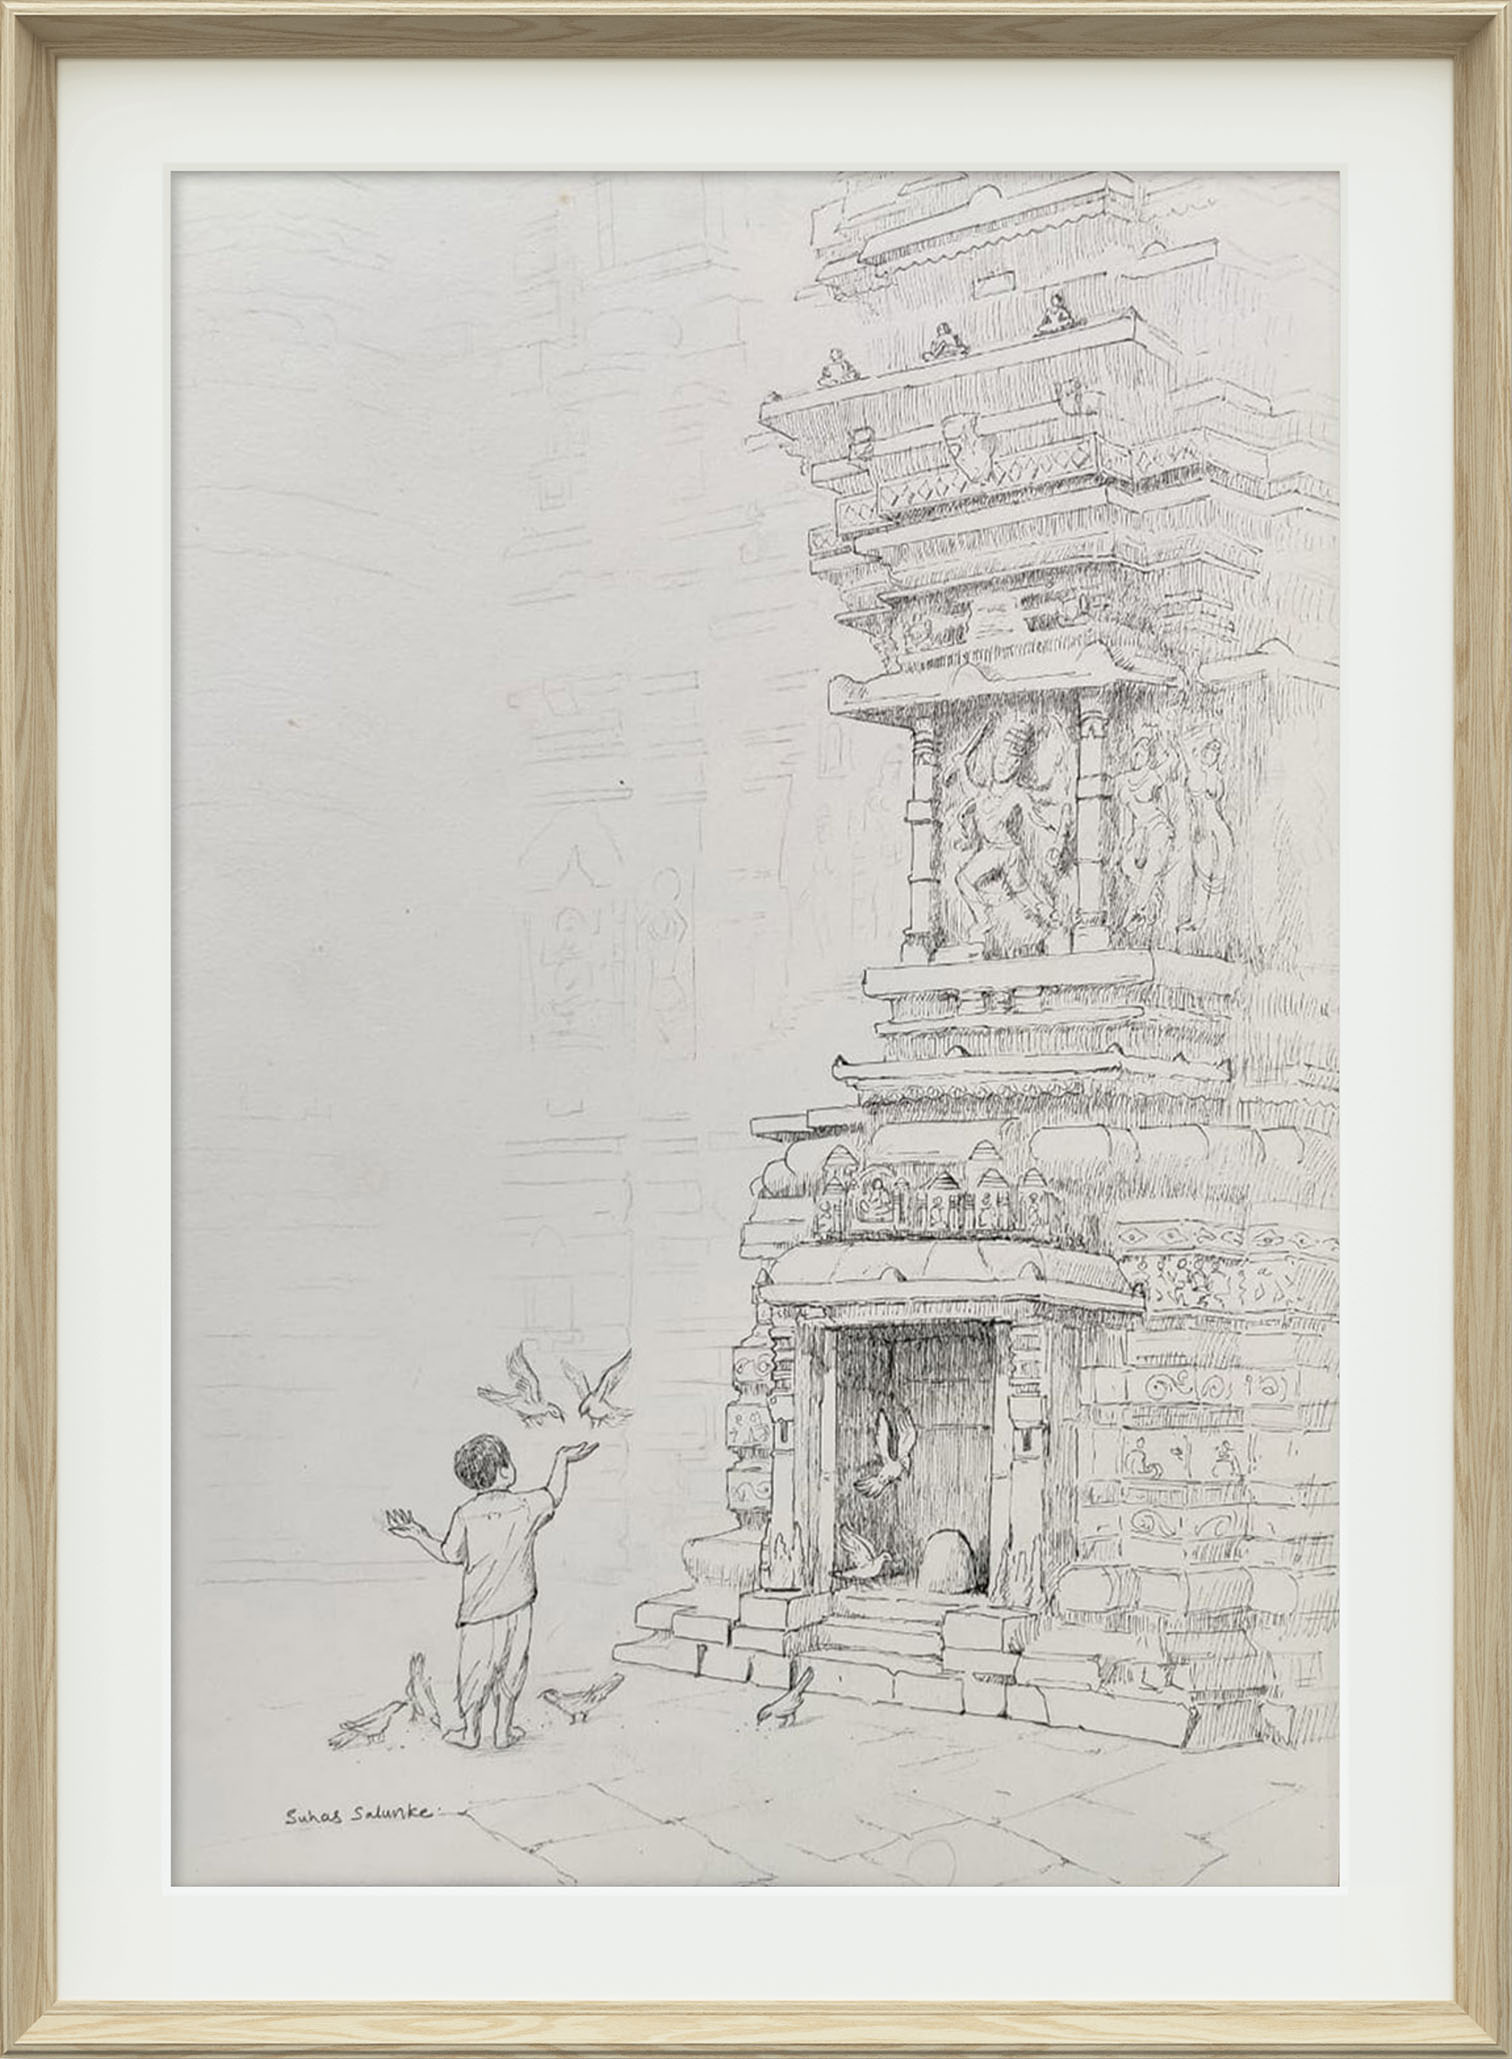 Suhas Salunke.